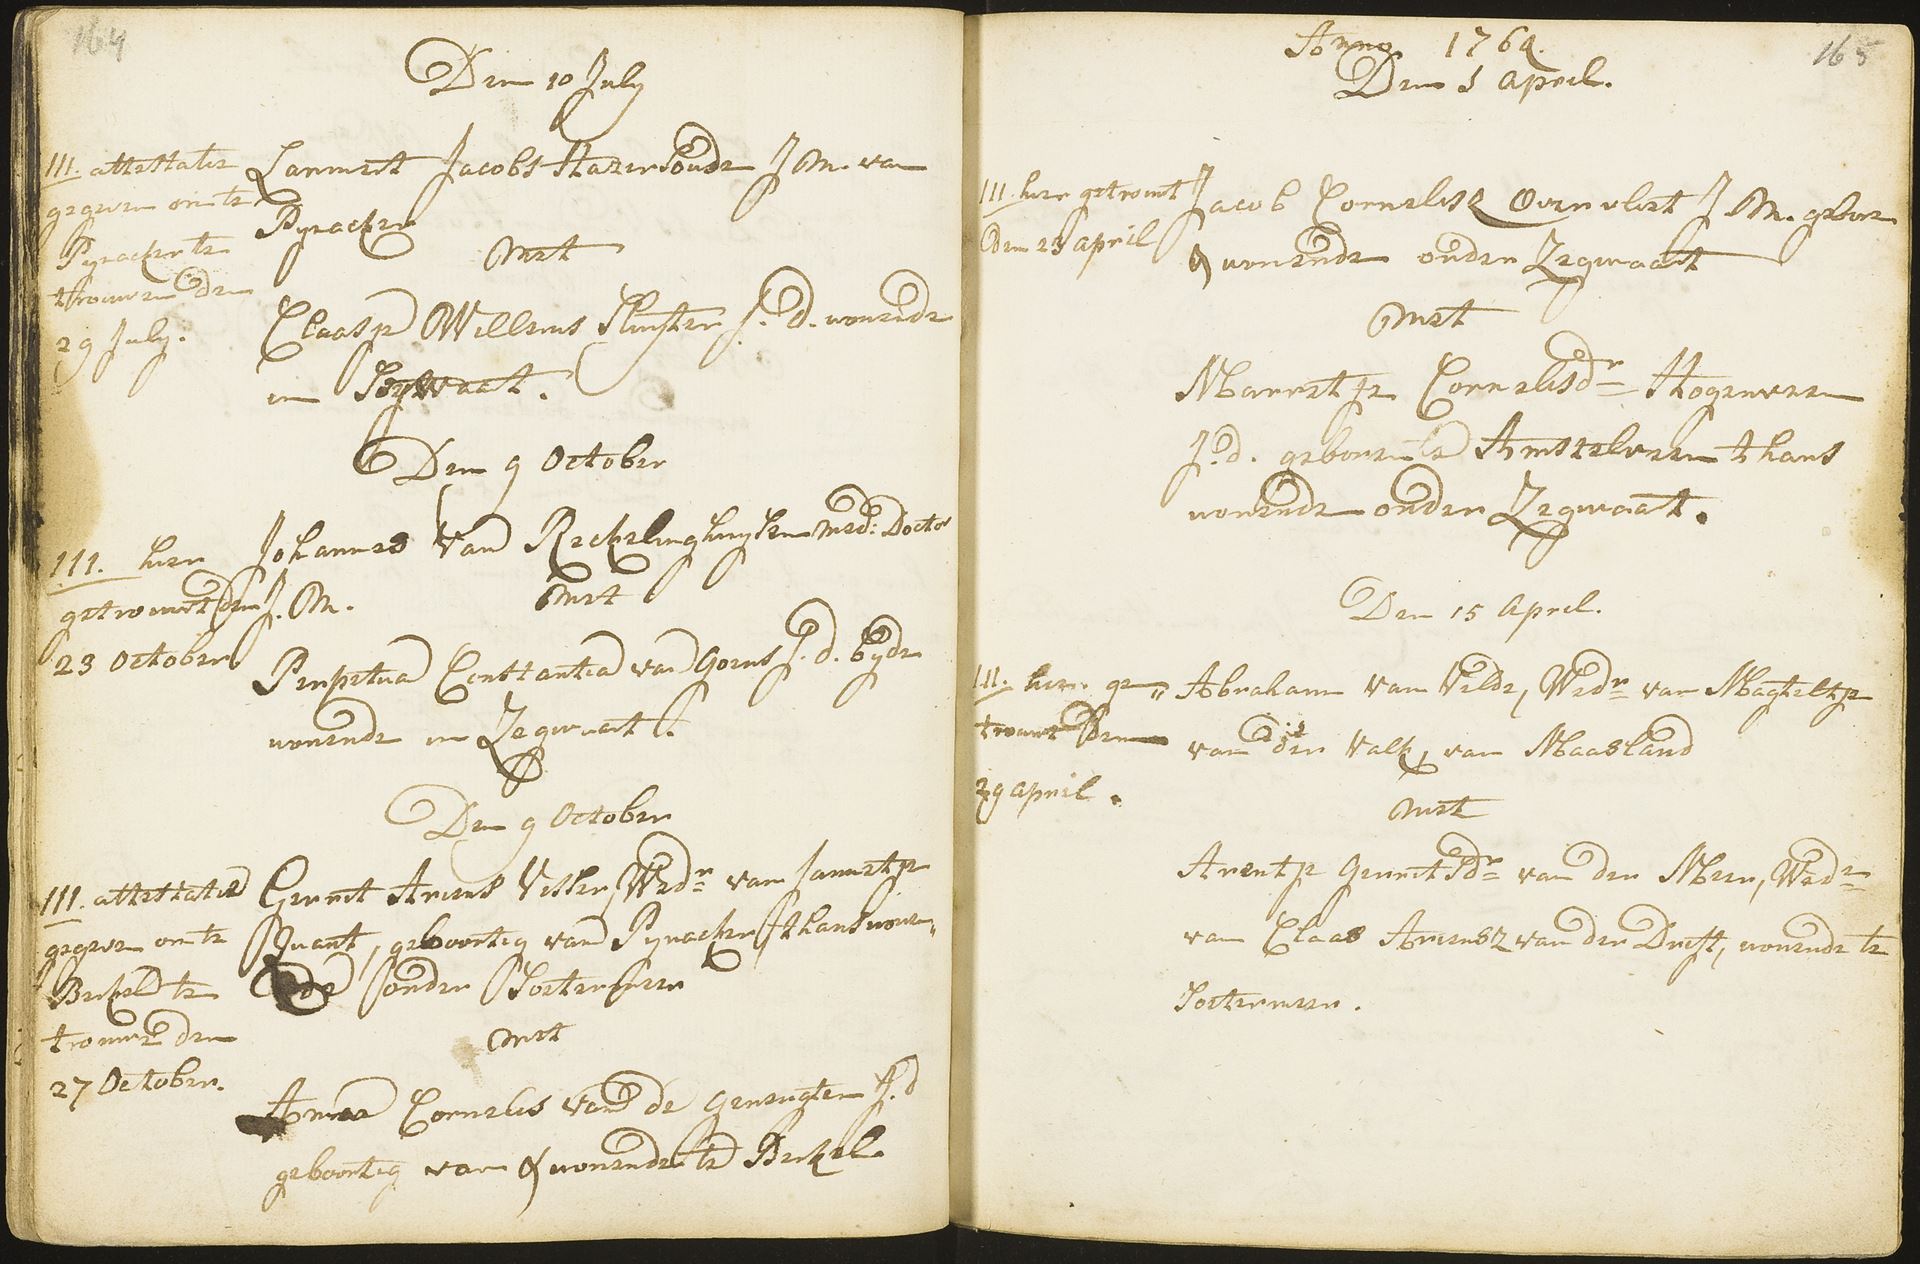 164
Den 10 July
111. attestatie
gegeven om te
Pynacker te
trouwen den
29 July.
Lammert Jacobs Hazersoude J.M. van
Pynacker
met
Claasje Willems Sluyter J.d. wonende
in Segwaart.
Den 9 October
111. hier
getrouwt den
23 October
Johannes van Reckelinghuysen med: Doctor
J.M.
met
Perpetua Constantia van Goens J.d. byde
wonende in Zegwaart.
Den 9 October
111. attestatie
gegeven om te
Berkel te
trouwen den
27 October.
Gerrit Ariens Visser, Wedr van Jannetje
Quant, geboortig van Pynacker thans wonen„
de onder Soetermeer
met
Annaa Cornelis van de Geneugten J.d
geboortig van & wonende te Berkel.
165
Anno 1764.
Den 1 April.
111. hier getrouwt
den 23 april
Jacob Cornelisz Overvliet J.M. gebore
& wonende onder Zegwaart
met
Marretje Cornelisdr Hogeveen
J.d. geboren te Amstelveen thans
wonende onder Zegwaart.
Den 15 April.
111. hier ge„
trouwt Den
29 april.
Abraham van Velde, Wedr van Magteltje
van der Valk, van Maasland
met
Arentje Gerritsdr van der Meer, Wede
van Claas Ariensz van der Drift, wonende te
Soetermeer.